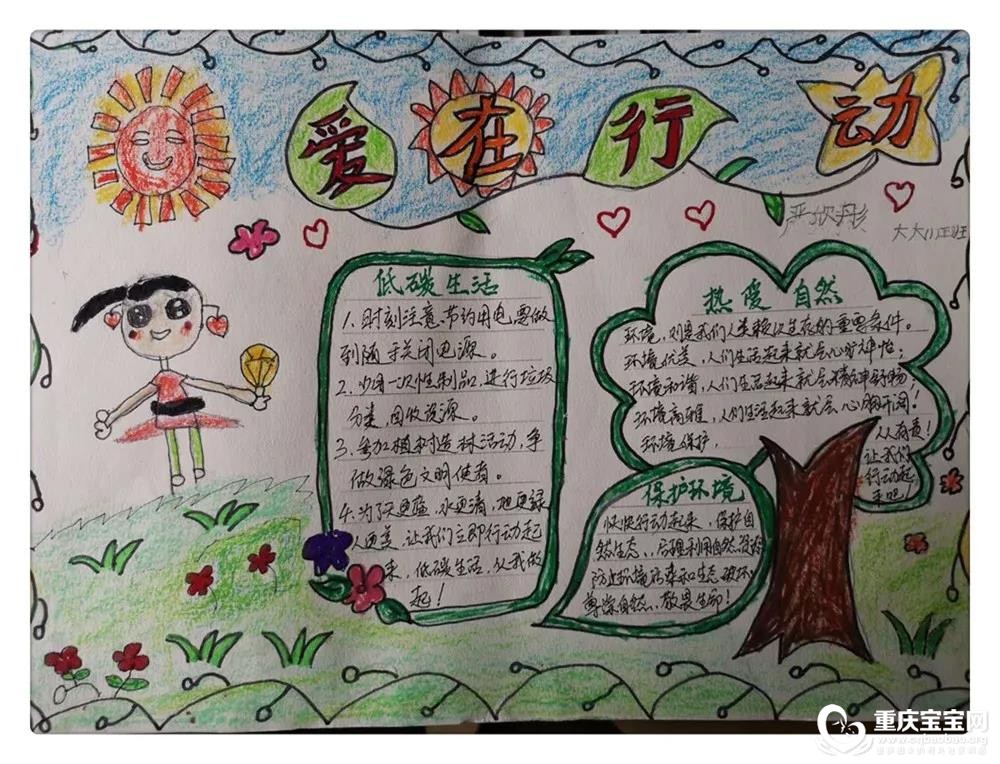 爱在行动
严欣彤
大大小正班
低碳生活
1、时刻注意节约用电要做
到随手关闭电源。
2、少用一次性制品,进行垃圾
分类,回收资源。
3、参加植树造林活动,争
做绿色文明使者。
4、为了天更蓝,水更清,地更绿
人更美,让我们立即行动起
来,低碳生活,从我做
起!
热爱自然
环境,则是我们人类赖以生存的重要条件。
环境优美,人们生活起来就会心旷神怡;
环境和谐,人们生活起来就会精神舒畅;
环境高雅,人们生活起来就会心胸开阔!
环境保护,
人人有责!
让我们
行动起
来吧!
保护环境
快快行动起来,保护自
然生态、,合理利用自然资源
防止环境污染和生态破坏
尊崇自然、,敬畏生命!
重庆宝宝网
www.cqbaobao.org